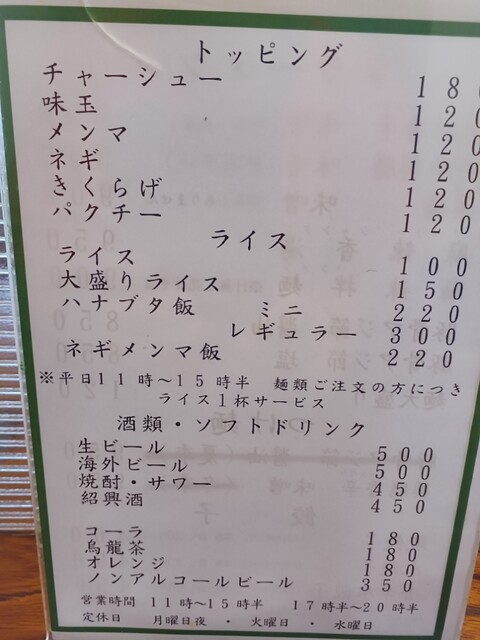 トッピング
チャーシュー 180
味玉 120
メンマ 120
ネギ 120
きくらげ 120
パクチー 120
ライス
ライス 100
大盛りライス 150
ハナブタ飯 ミニ 220
レギュラー 300
ネギメンマ飯 220
※平日11時〜15時半 麺類ご注文の方につき
ライス1杯サービス
酒類・ソフトドリンク
生ビール 500
海外ビール 500
焼酎・サワー 450
紹興酒 450
コーラ 180
烏龍茶 180
オレンジ 180
ノンアルコールビール 350
営業時間 11時〜15時半 17時半〜20時半
定休日 月曜日夜・火曜日・水曜日